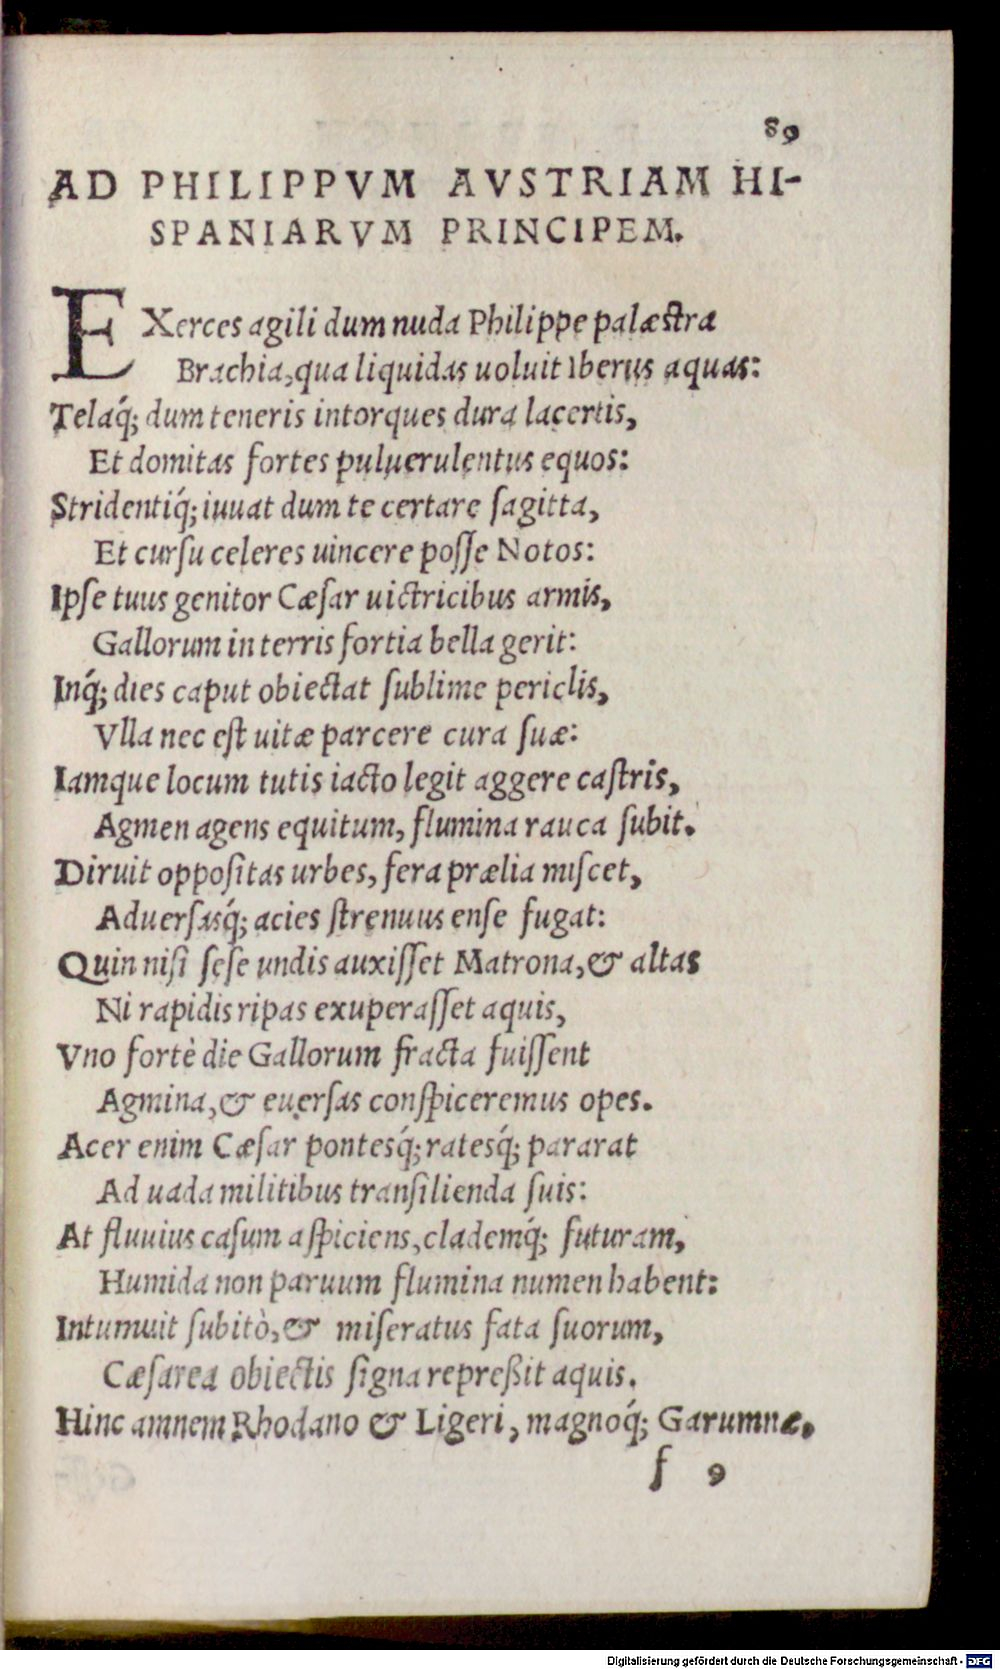 89
AD PHILIPPVM AVSTRIAM HI-
SPANIARVM PRINCIPEM.
EXerces agili dum nuda Philippe palæstra
Brachia, qua liquidas uoluit Iberus aquas:
Telaq́; dum teneris intorques dura lacertis,
Et domitas fortes puluerulentus equos:
Stridentiq́; iuuat dum te certare ſagitta,
Et curſu celeres uincere poſſe Notos:
Ipſe tuus genitor Cæſar uictricibus armis,
Gallorum in terris fortia bella gerit:
Inq́; dies caput obiectat ſublime periclis,
Vlla nec eſt uitæ parcere cura ſuæ:
Iamque locum tutis iacto legit aggere caſtris,
Agmen agens equitum, flumina rauca ſubit.
Diruit oppoſitas urbes, fera prælia miſcet,
Aduerſasq́; acies ſtrenuus enſe fugat:
Quin niſi ſeſe undis auxiſſet Matrona, & altas
Ni rapidis ripas exuperaſſet aquis,
Vno fortè die Gallorum fracta fuiſſent
Agmina, & euerſas conſpiceremus opes.
Acer enim Cæſar pontesq́; ratesq́; pararat
Ad uada militibus tranſilienda ſuis:
At fluuius caſum aſpiciens, clademq́; futuram,
Humida non paruum flumina numen habent:
Intumuit ſubitò, & miſeratus fata ſuorum,
Cæſarea obiectis ſigna repreßit aquis.
Hinc amnem Rhodano & Ligeri, magnoq́; Garumnæ,
f 9
Digitalisierung gefördert durch die Deutsche Forschungsgemeinschaft - DFG